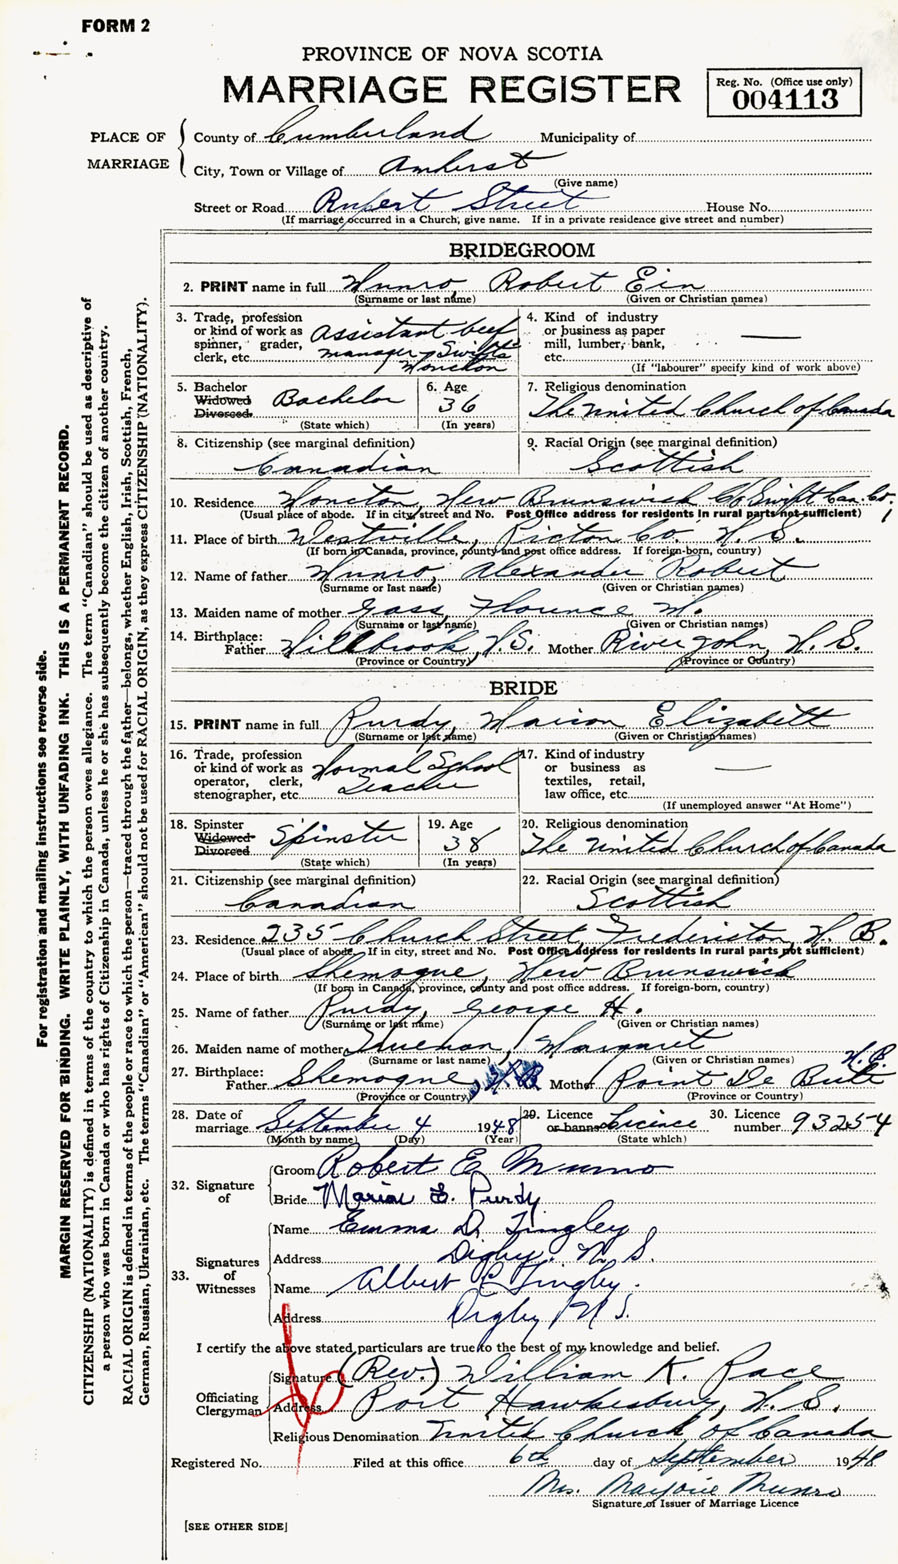 FORM 2
PROVINCE OF NOVA SCOTIA
MARRIAGE REGISTER
Reg. No. (Office use only)
004113
PLACE OF MARRIAGE
County of Cumberland Municipality of
City, Town or Village of Amherst
(Give name)
Street or Road Rupert Street House No.
(If marriage occurred in a Church, give name. If in a private residence give street and number)
BRIDEGROOM
2. PRINT name in full Munro Robert Ein
(Surname or last name) (Given or Christian names)
3. Trade, profession or kind of work as spinner, grader, clerk, etc. assistant beef manager Swifts Moncton
4. Kind of industry or business as paper mill, lumber, bank, etc. —
(If "labourer" specify kind of work above)
5. Bachelor Widowed Divorced Bachelor
(State which)
6. Age 36
(In years)
7. Religious denomination
The United Church of Canada
8. Citizenship (see marginal definition)
Canadian
9. Racial Origin (see marginal definition)
Scottish
10. Residence Moncton, New Brunswick C/o Swift Can. Co.
(Usual place of abode. If in city, street and No. Post Office address for residents in rural parts not sufficient)
11. Place of birth Westville, Pictou Co. N. S.
(If born in Canada, province, county and post office address. If foreign-born, country)
12. Name of father Munro, Alexander Robert
(Surname or last name) (Given or Christian names)
13. Maiden name of mother Gass, Florence M.
(Surname or last name) (Given or Christian names)
14. Birthplace:
Father Millbrook, N.S. Mother River John, N. S.
(Province or Country) (Province or Country)
BRIDE
15. PRINT name in full Purdy, Marion Elizabeth
(Surname or last name) (Given or Christian names)
16. Trade, profession or kind of work as operator, clerk, stenographer, etc. Normal School Teacher
17. Kind of industry or business as textiles, retail, law office, etc. —
(If unemployed answer "At Home")
18. Spinster Widowed Divorced Spinster
(State which)
19. Age 38
(In years)
20. Religious denomination
The United Church of Canada
21. Citizenship (see marginal definition)
Canadian
22. Racial Origin (see marginal definition)
Scottish
23. Residence 235 Church Street Fredericton N. B.
(Usual place of abode. If in city, street and No. Post Office address for residents in rural parts not sufficient)
24. Place of birth Shemogue, New Brunswick
(If born in Canada, province, county and post office address. If foreign-born, country)
25. Name of father Purdy, George H.
(Surname or last name) (Given or Christian names)
26. Maiden name of mother Margaret
(Surname or last name) (Given or Christian names)
27. Birthplace:
Father Shemogue, N B Mother Point De Bute N. B.
(Province or Country) (Province or Country)
28. Date of marriage September 4 1948
(Month by name) (Day) (Year)
29. Licence or banns Licence
(State which)
30. Licence number 93254
32. Signature of
Groom Robert E. Munro
Bride Marion E. Purdy
33. Signatures of Witnesses
Name Emma D. Tingley
Address Digby. N. S.
Name Albert E Tingley.
Address Digby N S.
I certify the above stated particulars are true to the best of my knowledge and belief.
Officiating Clergyman
Signature (Rev.) William K. Pace
Address Port Hawkesbury, N. S.
Religious Denomination United Church of Canada
Registered No. Filed at this office 6th day of September 1948
Mrs. Marjorie Munro
Signature of Issuer of Marriage Licence
[SEE OTHER SIDE]
For registration and mailing instructions see reverse side.
MARGIN RESERVED FOR BINDING. WRITE PLAINLY, WITH UNFADING INK. THIS IS A PERMANENT RECORD.
CITIZENSHIP (NATIONALITY) is defined in terms of the country to which the person owes allegiance. The term "Canadian" should be used as descriptive of
a person who was born in Canada or who has rights of Citizenship in Canada, unless he or she has subsequently become the citizen of another country.
RACIAL ORIGIN is defined in terms of the people or race to which the person—traced through the father—belongs, whether English, Irish, Scottish, French,
German, Russian, Ukrainian, etc. The terms "Canadian" or "American" should not be used for RACIAL ORIGIN, as they express CITIZENSHIP (NATIONALITY).